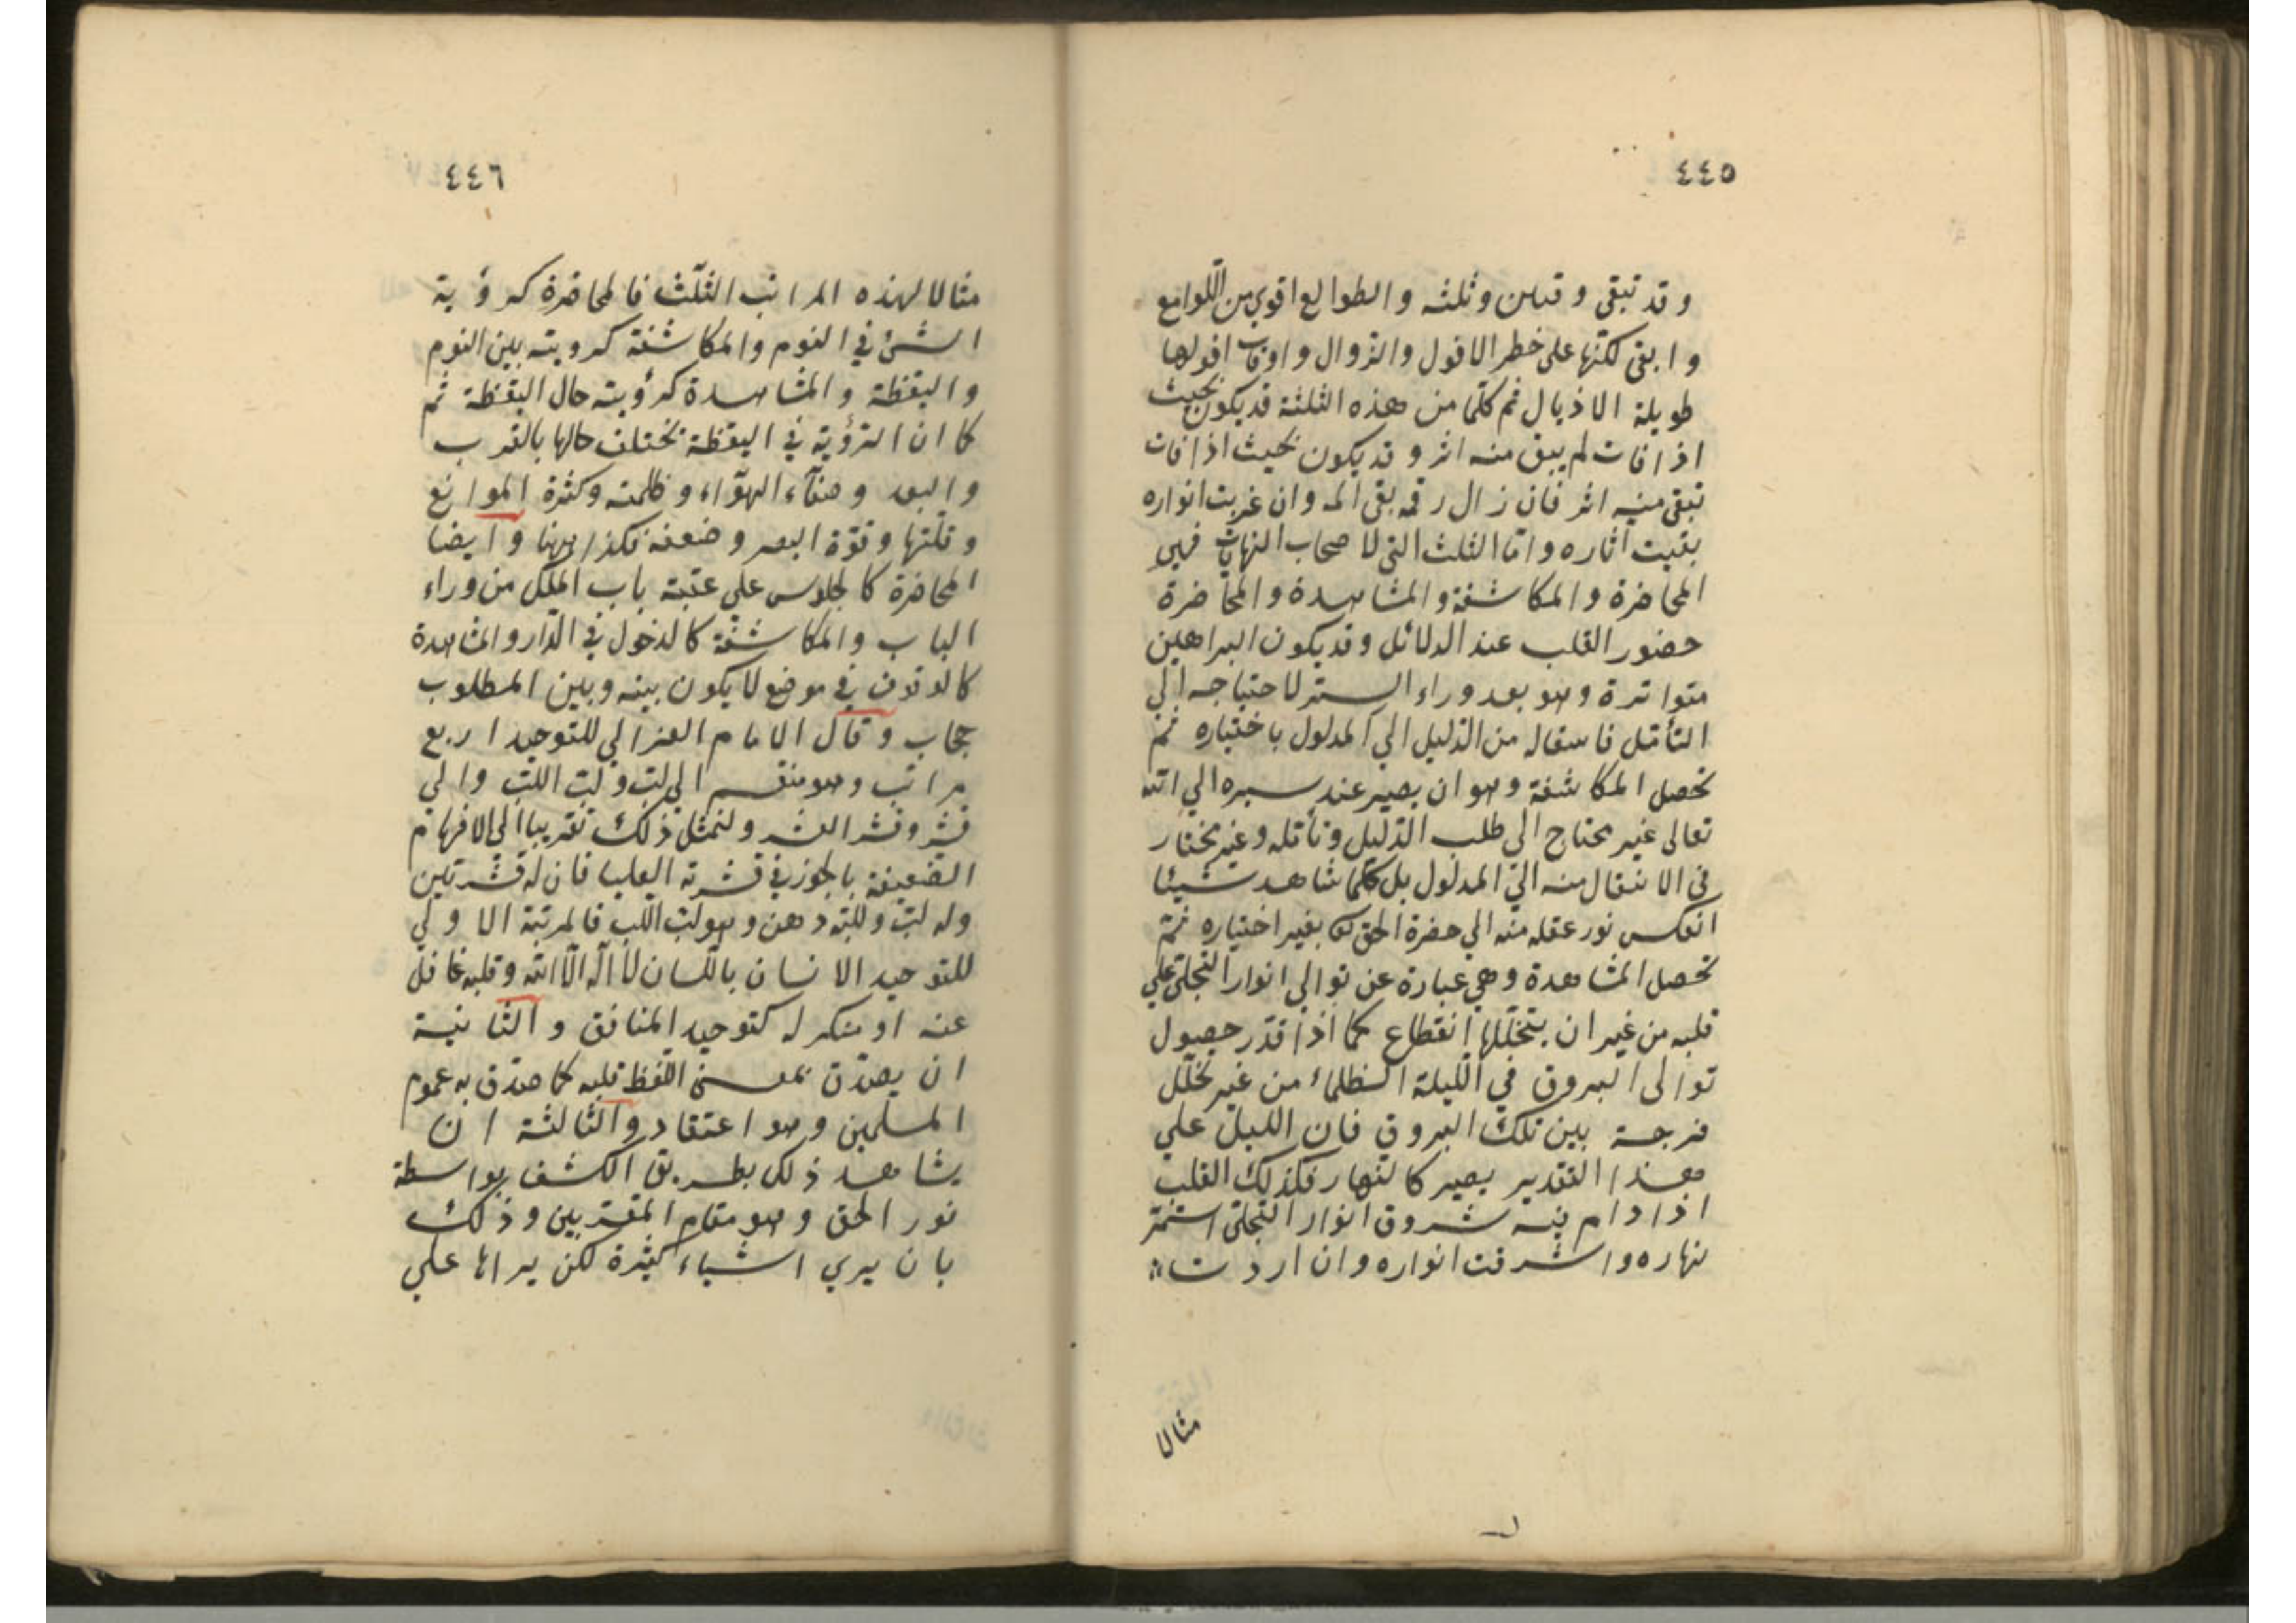 ٤٤٥
وقد تبقى وقتين وثلثه والطوالع اقوي من اللّوامع
وابقى لكنّها على خطر الافول والزوال واوقات افولها
طويلة الاذيال ثم كلّما من هذه الثلثة قد يكون بحيث
اذا فات لم يبق منه اثر وقد يكون بحيث اذا فات
تبقى منه اثر فان زال رقمه بقى المه وان غربت انواره
بقيت آثاره وامّا الثلث التي لاصحاب النهايات فهي
المحاضرة والمكاشفة والمشاهدة والمحاضرة
حضور القلب عند الدلائل وقد يكون البراهين
متواترة وهو بعد وراء الستر لاحتياجه الي
التأمّل فانتقاله من الدّليل الي المدلول باختياره ثمّ
تحصل المكاشفة وهو ان يصير عند سيره الي اللّه
تعالى غير محتاج الي طلب الدّليل وتأمّله وغير مختار
في الانتقال منه الي المدلول بل كلّما شاهد شيئا
انعكس نور عقله منه الي حضرة الحق بغير اختياره ثمّ
تحصل المشاهدة وهي عبارة عن توالي انوار التجلّي علي
قلبه من غير ان يتخلّلها انقطاع كما اذا قدّر حصول
توالى البروق في اللّيلة الظلماء من غير تخلّل
فرجة بين تلك البروق فان الليل علي
هذا التقدير يصير كالنهار فكذلك القلب
اذا دام فيه شروق انوار التجلّي استمرّ
نهاره واشرقت انواره وان اردت
مثالا
٤٤٦
مثالا لهذه المراتب الثلّث فالمحاضرة كرؤية
الشئ في النوم والمكاشفة كرويته بين النوم
واليقظة والمشاهدة كرؤيته حال اليقظة ثم
كما ان الرّؤية في اليقظة تختلف حالها بالقرب
والبعد وصفآء الهوآء وظلمته وكثرة الموانع
وقلّتها وقوّة البصر وضعفه فكذا ههنا وايضا
المحاضرة كالجلوس علي عتبة باب الملك من وراء
الباب والمكاشفة كالدخول في الدّار والمشاهدة
كالوقوف في موضع لا يكون بينه وبين المطلوب
حجاب وقال الامام الغزالي للتوحيد اربع
مراتب وهو منقسم الي لبّ ولبّ اللّبّ والي
قشر وقشر القشر ولنمثّل ذلك تقريبا الي الافهام
الضعيفة بالجوز في قشرته العليا فان له قشرتين
وله لبّ وللّبّه دهن وهو لبّ اللّب فالمرتبة الاولي
للتوحيد الانسان باللّسان لا اله الّا اللّه وقلبه غافل
عنه او منكر له كتوحيد المنافق والثانية
ان يصدّق بمعنى اللّفظ قلبه كما صدّق به عموم
المسلمين وهو اعتقاد والثالثة ان
يشاهد ذلك بطريق الكشف بواسطة
نور الحق وهو مقام المقرّبين وذلك
بان يري اشياء كثيرة لكن يراها علي